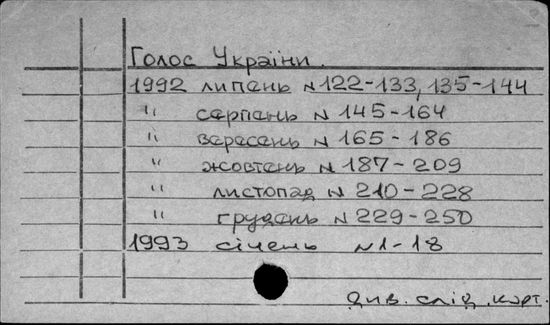 Голос України.
1992 липень N 122-133, 135-144
" серпень N 145-164
" вересень N 165-186
" жовтень N 187-209
" листопад N 210-228
" грудень N 229-250
1993 січень N 1-18
див. слід. карт.